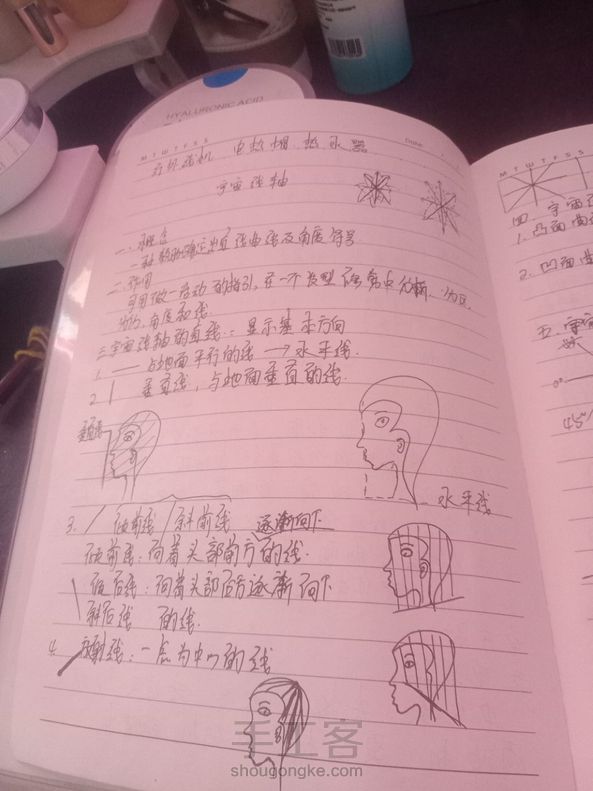 HYALURONIC ACID
M T W T F S S
Date
电热帽 热水器
宇宙线轴
一. 概念
一种能够确定出直线曲线及角度符号
二. 作用
可用做一启动的指引, 在一个发型
分份, 角度和线.
三. 宇宙线轴的直线: 显示基本方向
1. — 与地面平行的线 → 水平线.
2. | 垂直线, 与地面垂直的线.
垂直线
水平线
3. / 倾前线 / 斜前线 逐渐向下
倾前线: 向着头部前方的线.
\ 倾后线: 向着头部后方逐渐向下
斜后线 的线.
4. 放射线: 一点为中心的线
M T W T F S S
四. 宇宙
1. 凸面曲
2. 凹面曲
五. 宇宙
0°
45°
手工客
shougongke.com